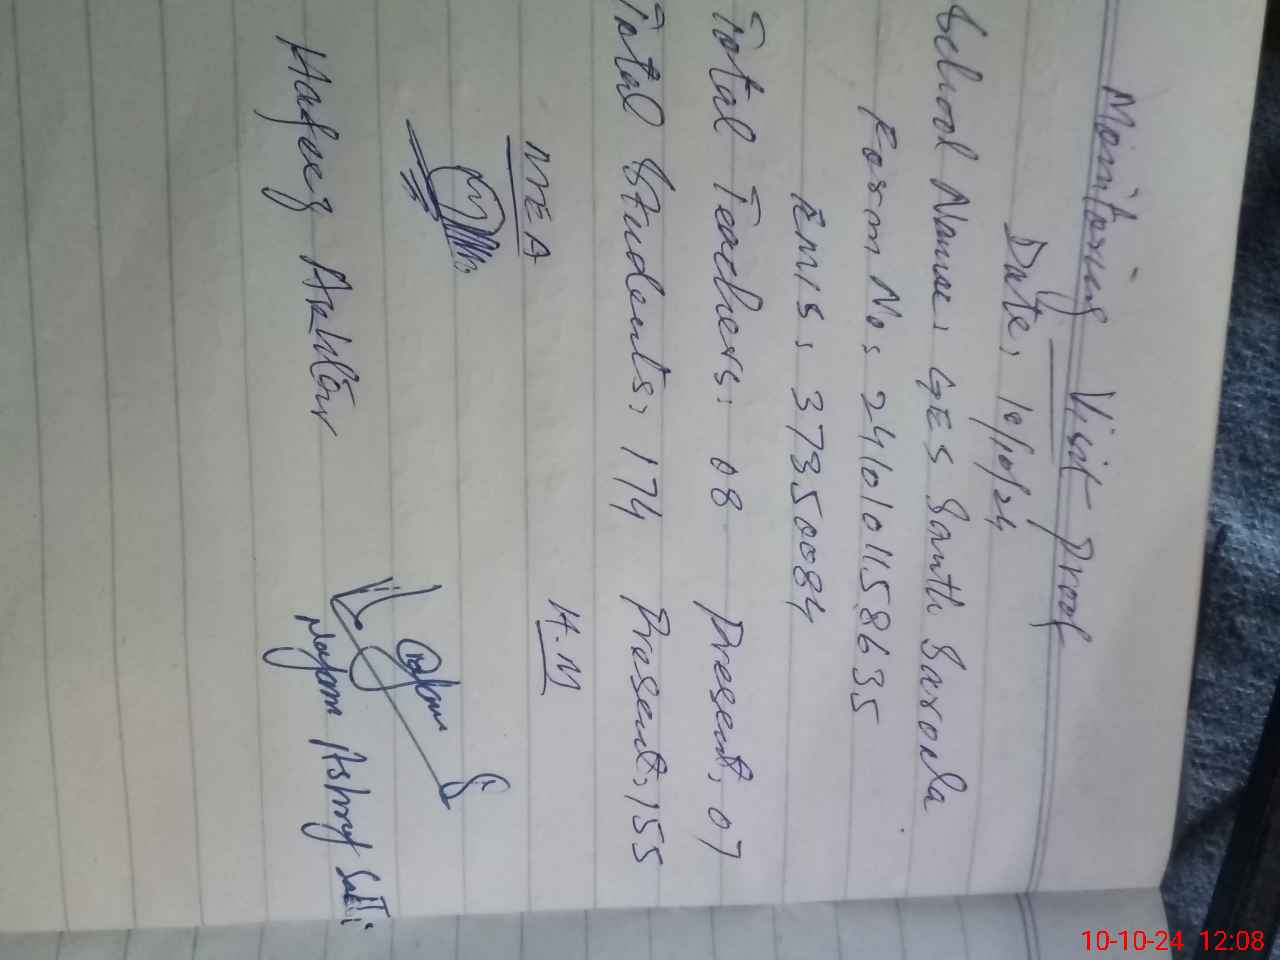 Monitoring Visit Proof
Date: 10/10/24
School Name: GES Santh Saroola
Form No: 2410101158635
EMIS: 37350084
Total Teachers: 08 Present: 07
Total Students: 174 Present: 155
MEA H.M
Hafeez Akhtar Nayam Ashraf Satti
10-10-24 12:08